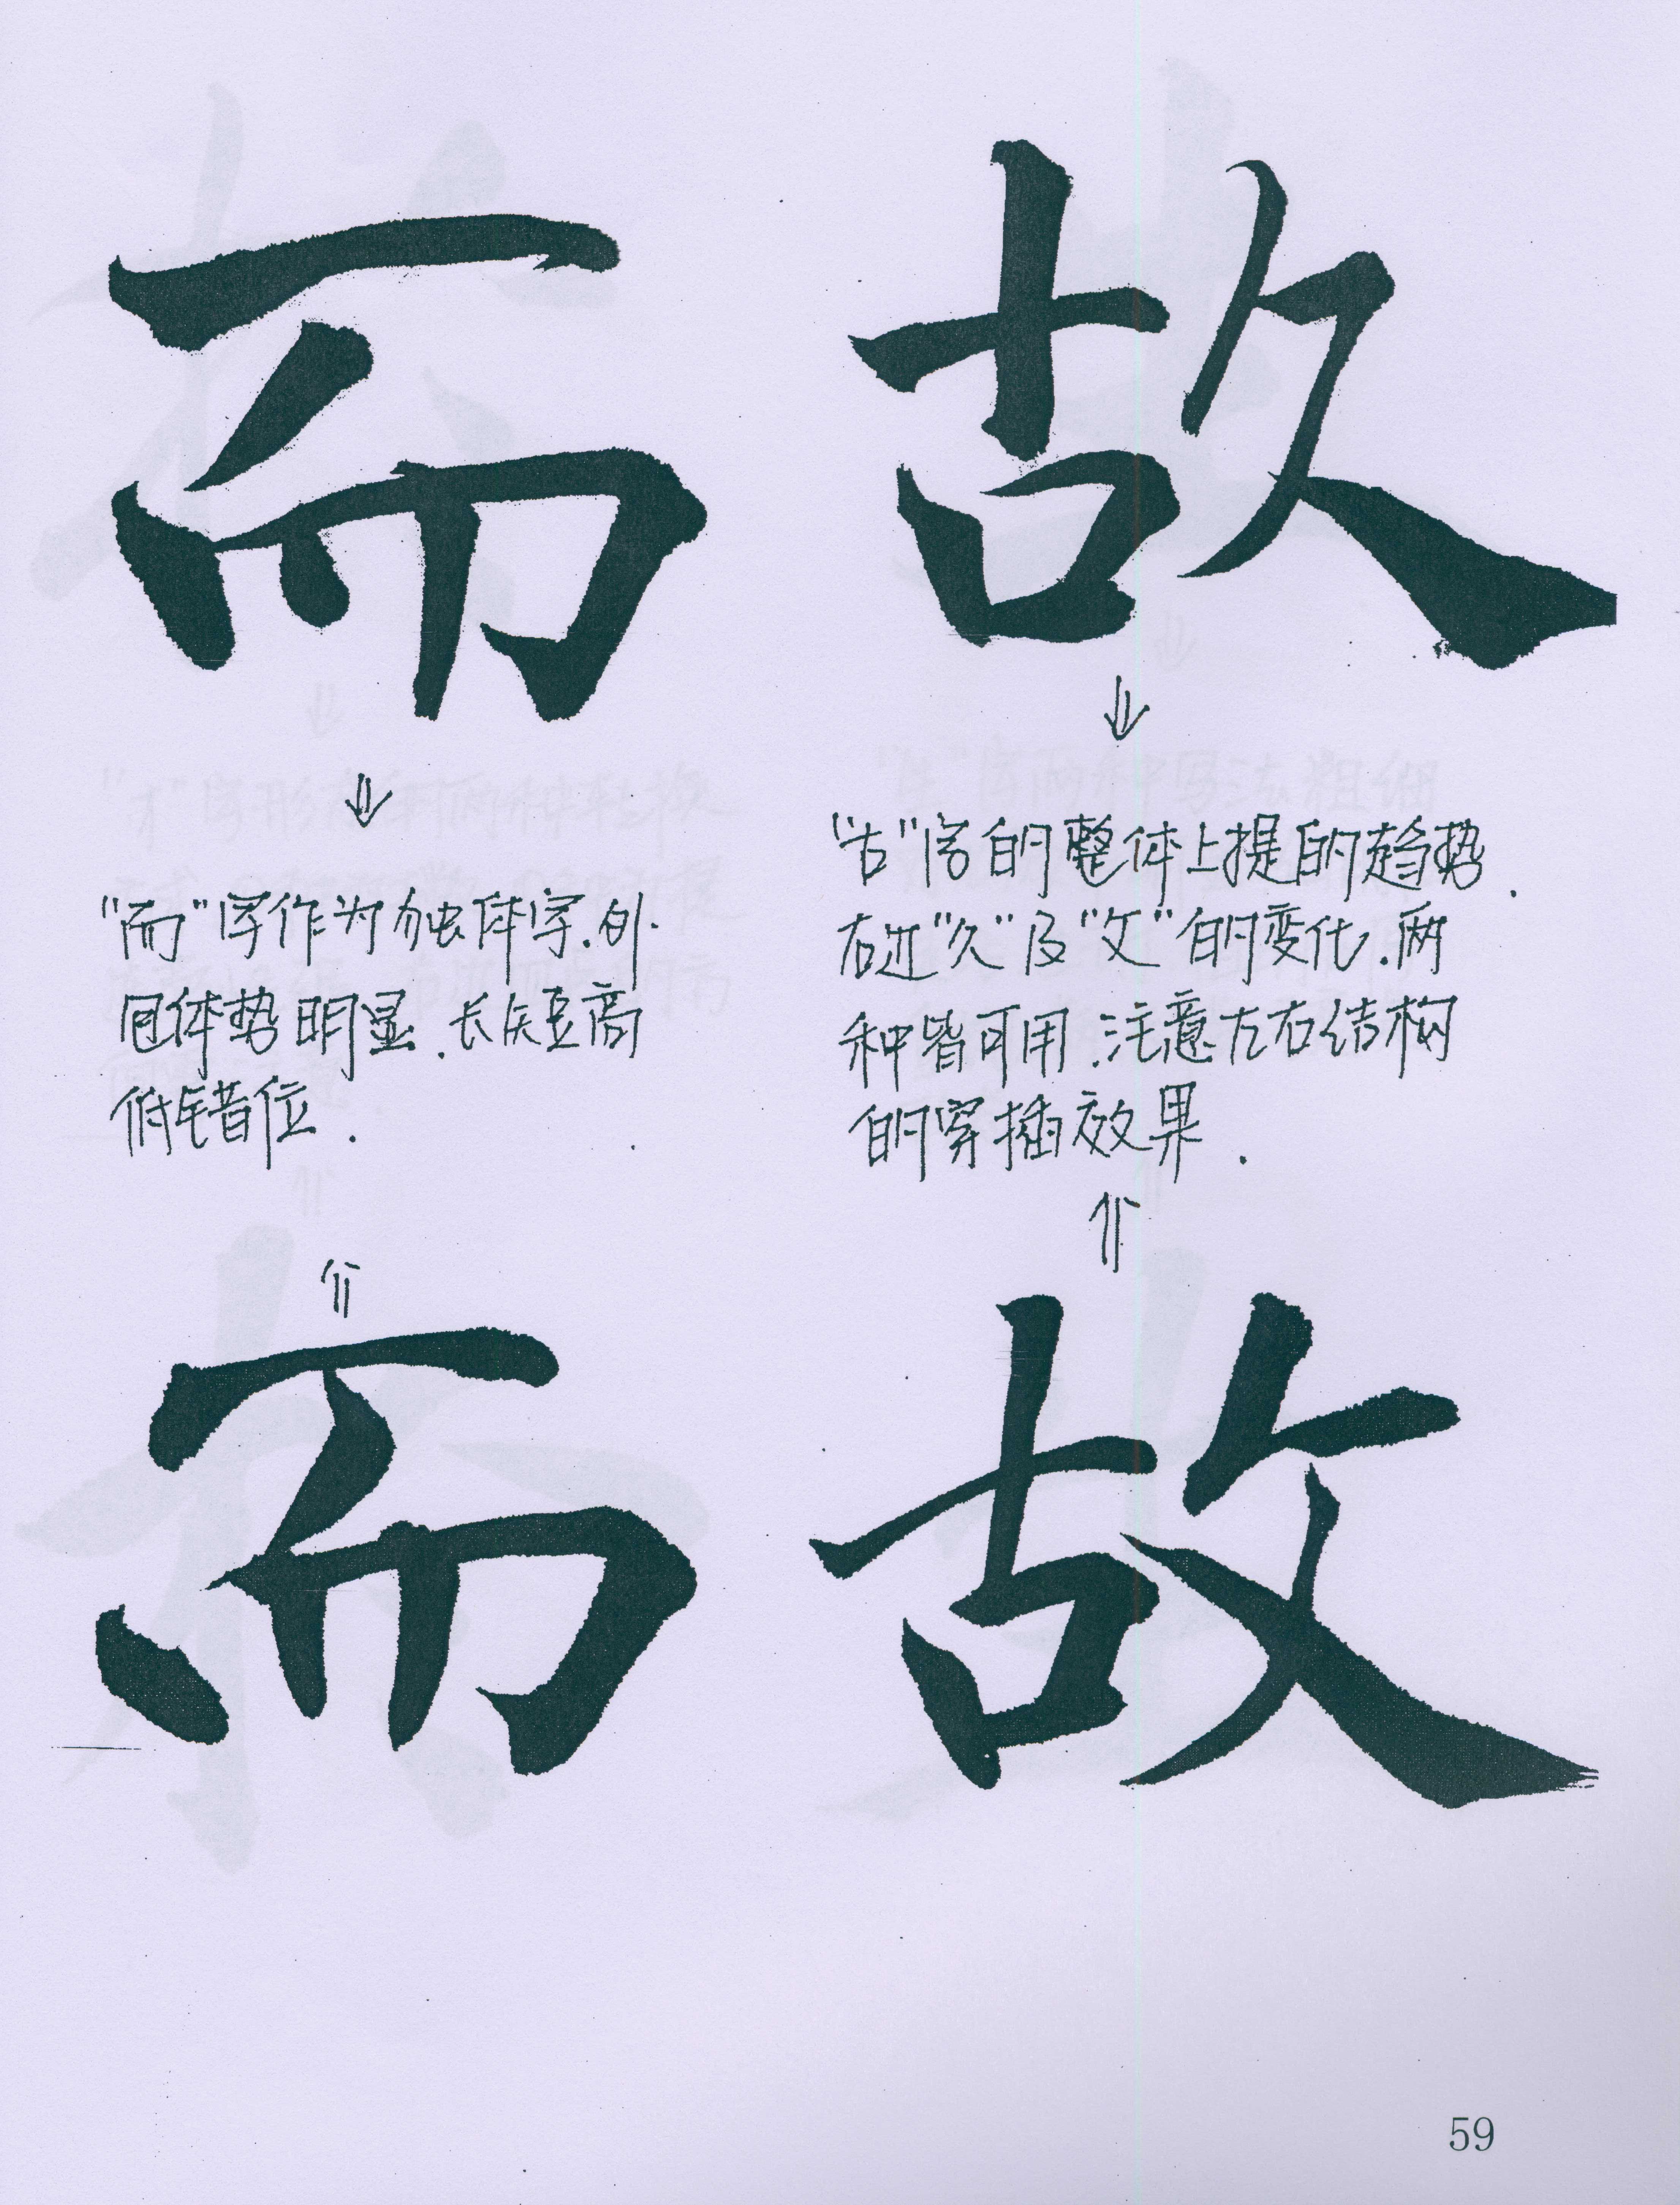 而 故
"古"字的整体上提的趋势.
右边"久"及"文"的变化.两
种皆可用.注意左右结构
的穿插效果.
"而"字作为独体字.外
包体势明显.长短高
低错位.
而 故
59